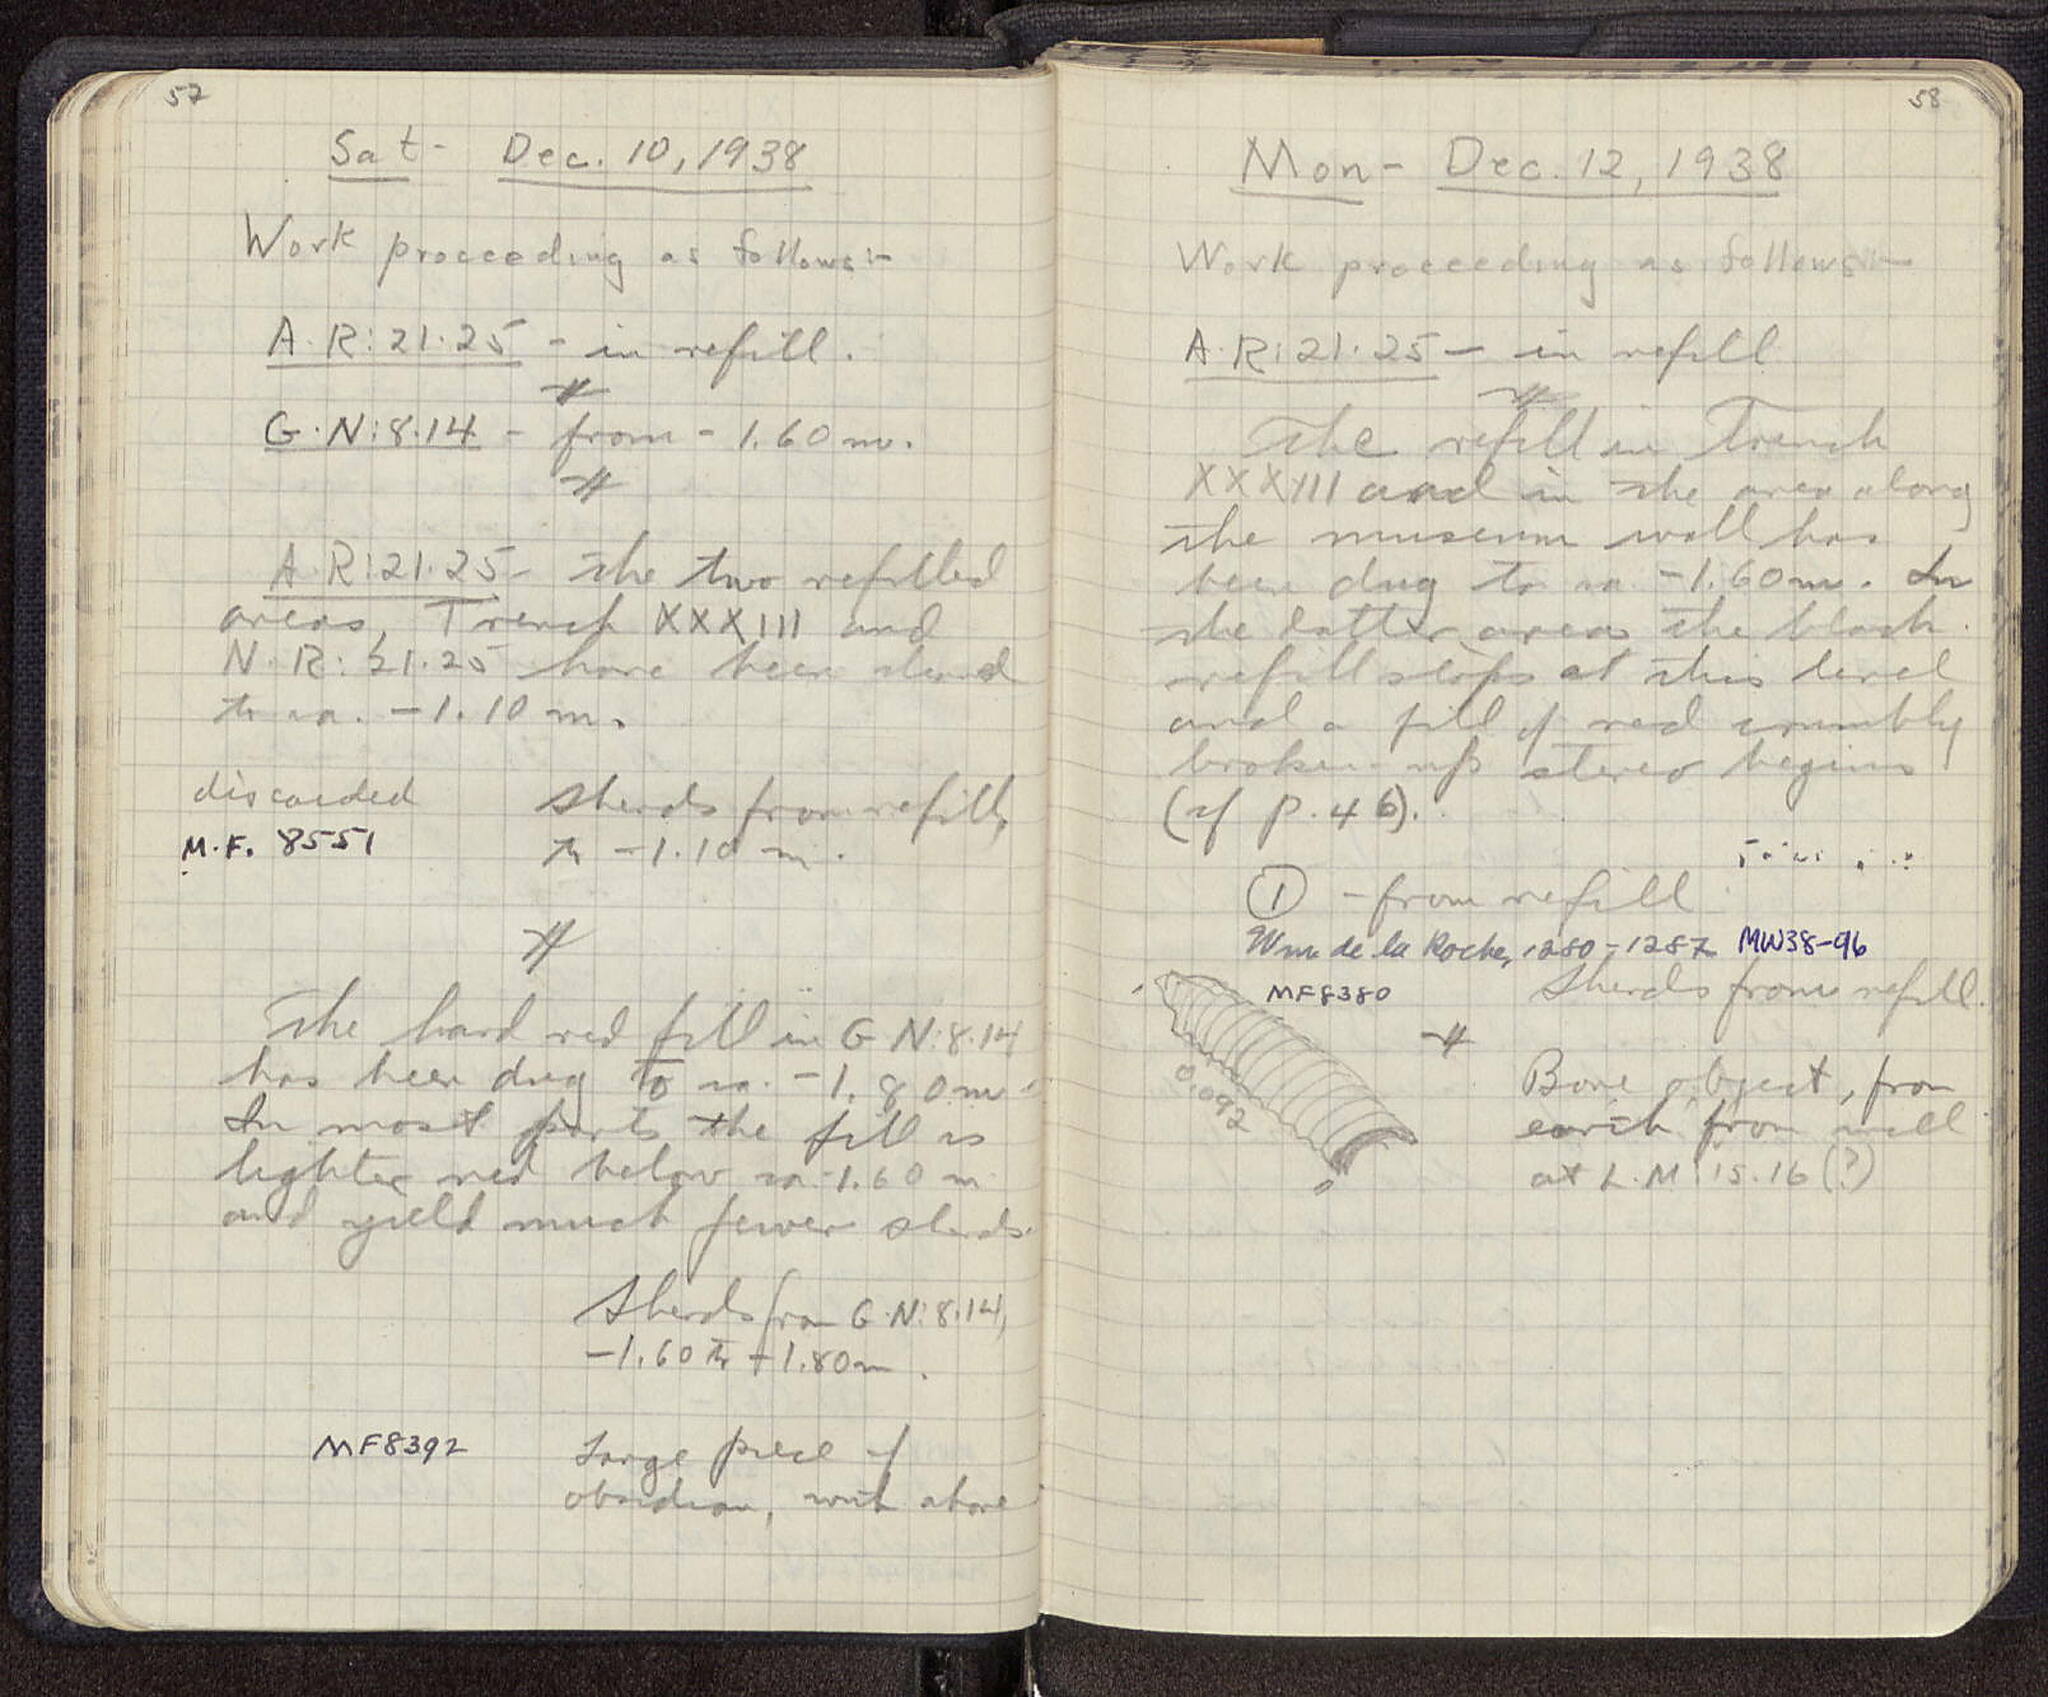 57
Sat- Dec. 10, 1938
Work proceeding as follows:-
A.R:21.25 - in refill.
G.N:8.14 - from -1.60m.
A.R:21.25- The two refilled
areas, Trench XXXIII and
N.R:21.25 have been
to ca. -1.10 m.
discarded
M.F. 8551
Sherds from refill,
to -1.10 m.
The hard red fill in G-N:8.14
has been dug to ca. -1.80m.
In most parts the fill is
lighter red below ca. -1.60 m
and yield much fewer sherds.
Sherds from G-N:8.14,
-1.60 to -1.80m.
MF8392
Large piece of
obsidian, with above
58
Mon- Dec. 12, 1938
Work proceeding as follows:-
A.R:21.25 - in refill
The refill in Trench
XXXIII and in the area along
the museum wall has
been dug to ca. -1.60m. In
the latter area the black
refill stops at this level
and a fill of red crumbly
broken-up stereo begins
(cf p.46).
① - from refill
Wm de la Roche, 1280-1287 MW38-96
MF8380
Sherds from refill.
0.092
Bone object, from
earth from well
at L.M:15.16 (?)